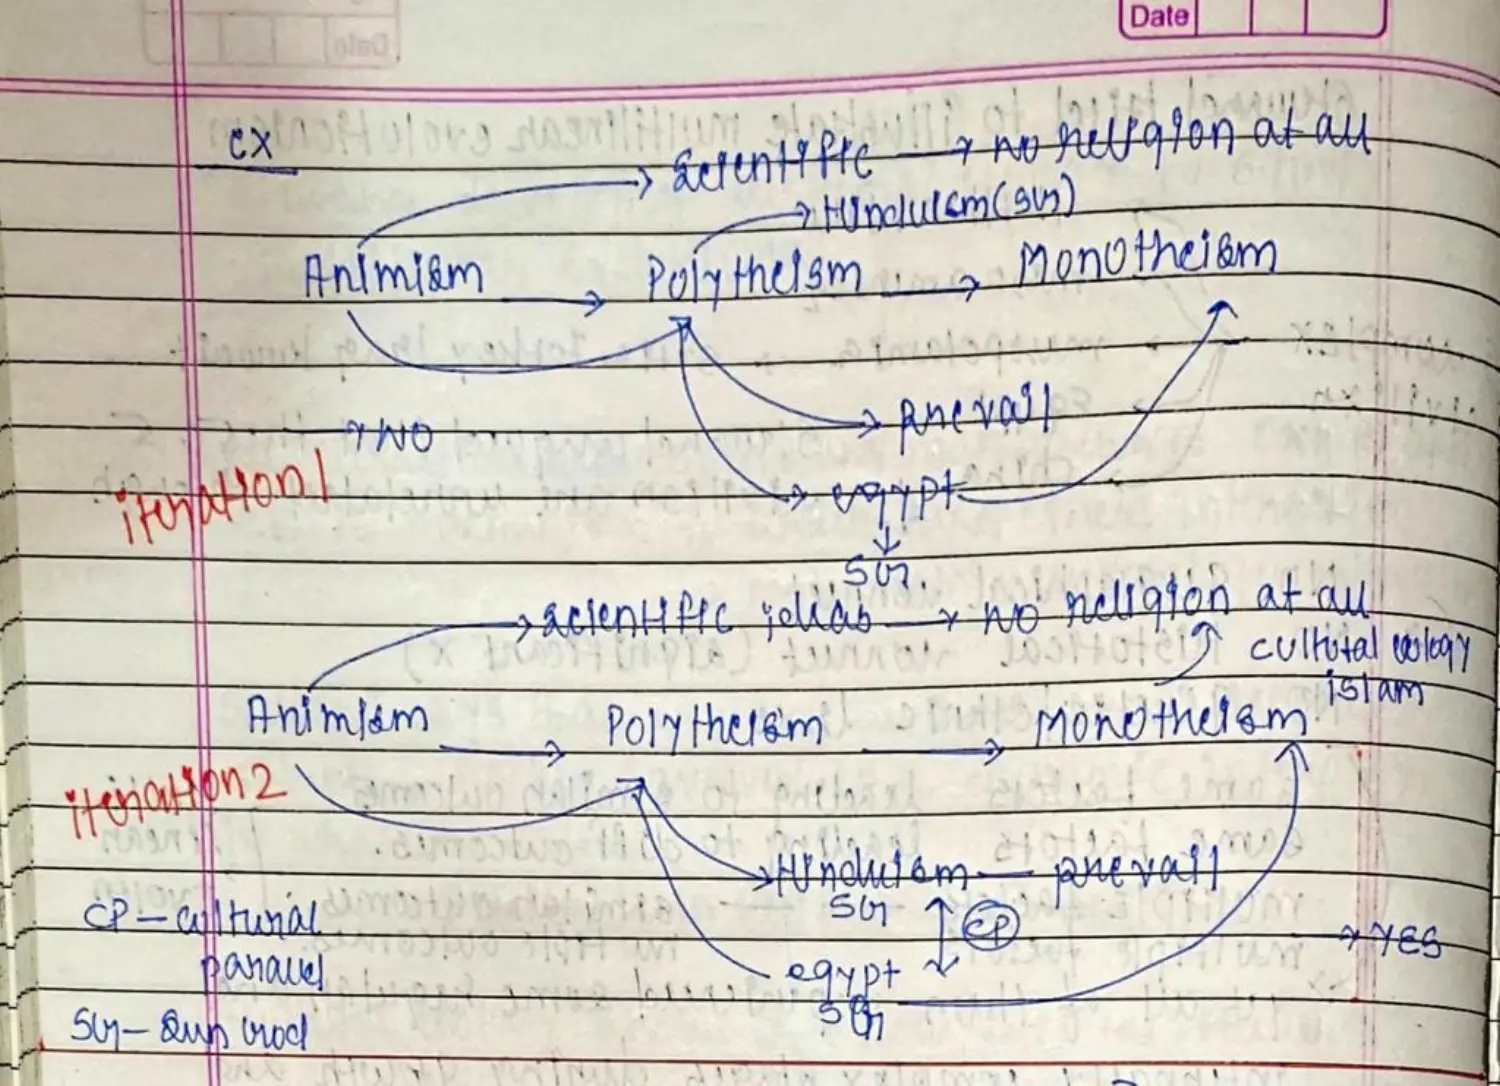 Date
ex
scientific → no religion at all
→ Hinduism (SG)
Animism → Polytheism → Monotheism
→ prevail
→ NO
iteration 1
→ egypt
↓
SG.
→ scientific ideas → no religion at all
cultural ecology
islam
Animism → Polytheism → Monotheism
iteration 2
→ Hinduism — prevail
SG
CP
CP – cultural
parallel
→ YES
egypt
SG
SG – Sun God